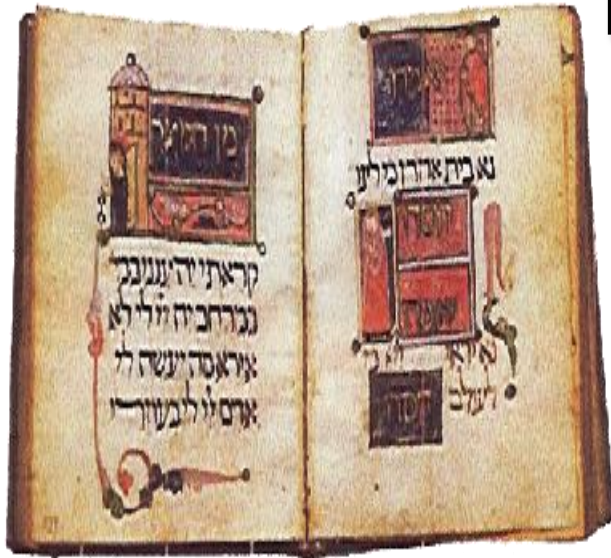 יאמרו
נא בית אהרן כי לעו
חסדו
יאמרו
נא יראי
חסדו
מן המצר
קראתי יה ענני
במרחב יה יי לי לא
אירא מה יעשה לי
אדם יי לי בעוזרי